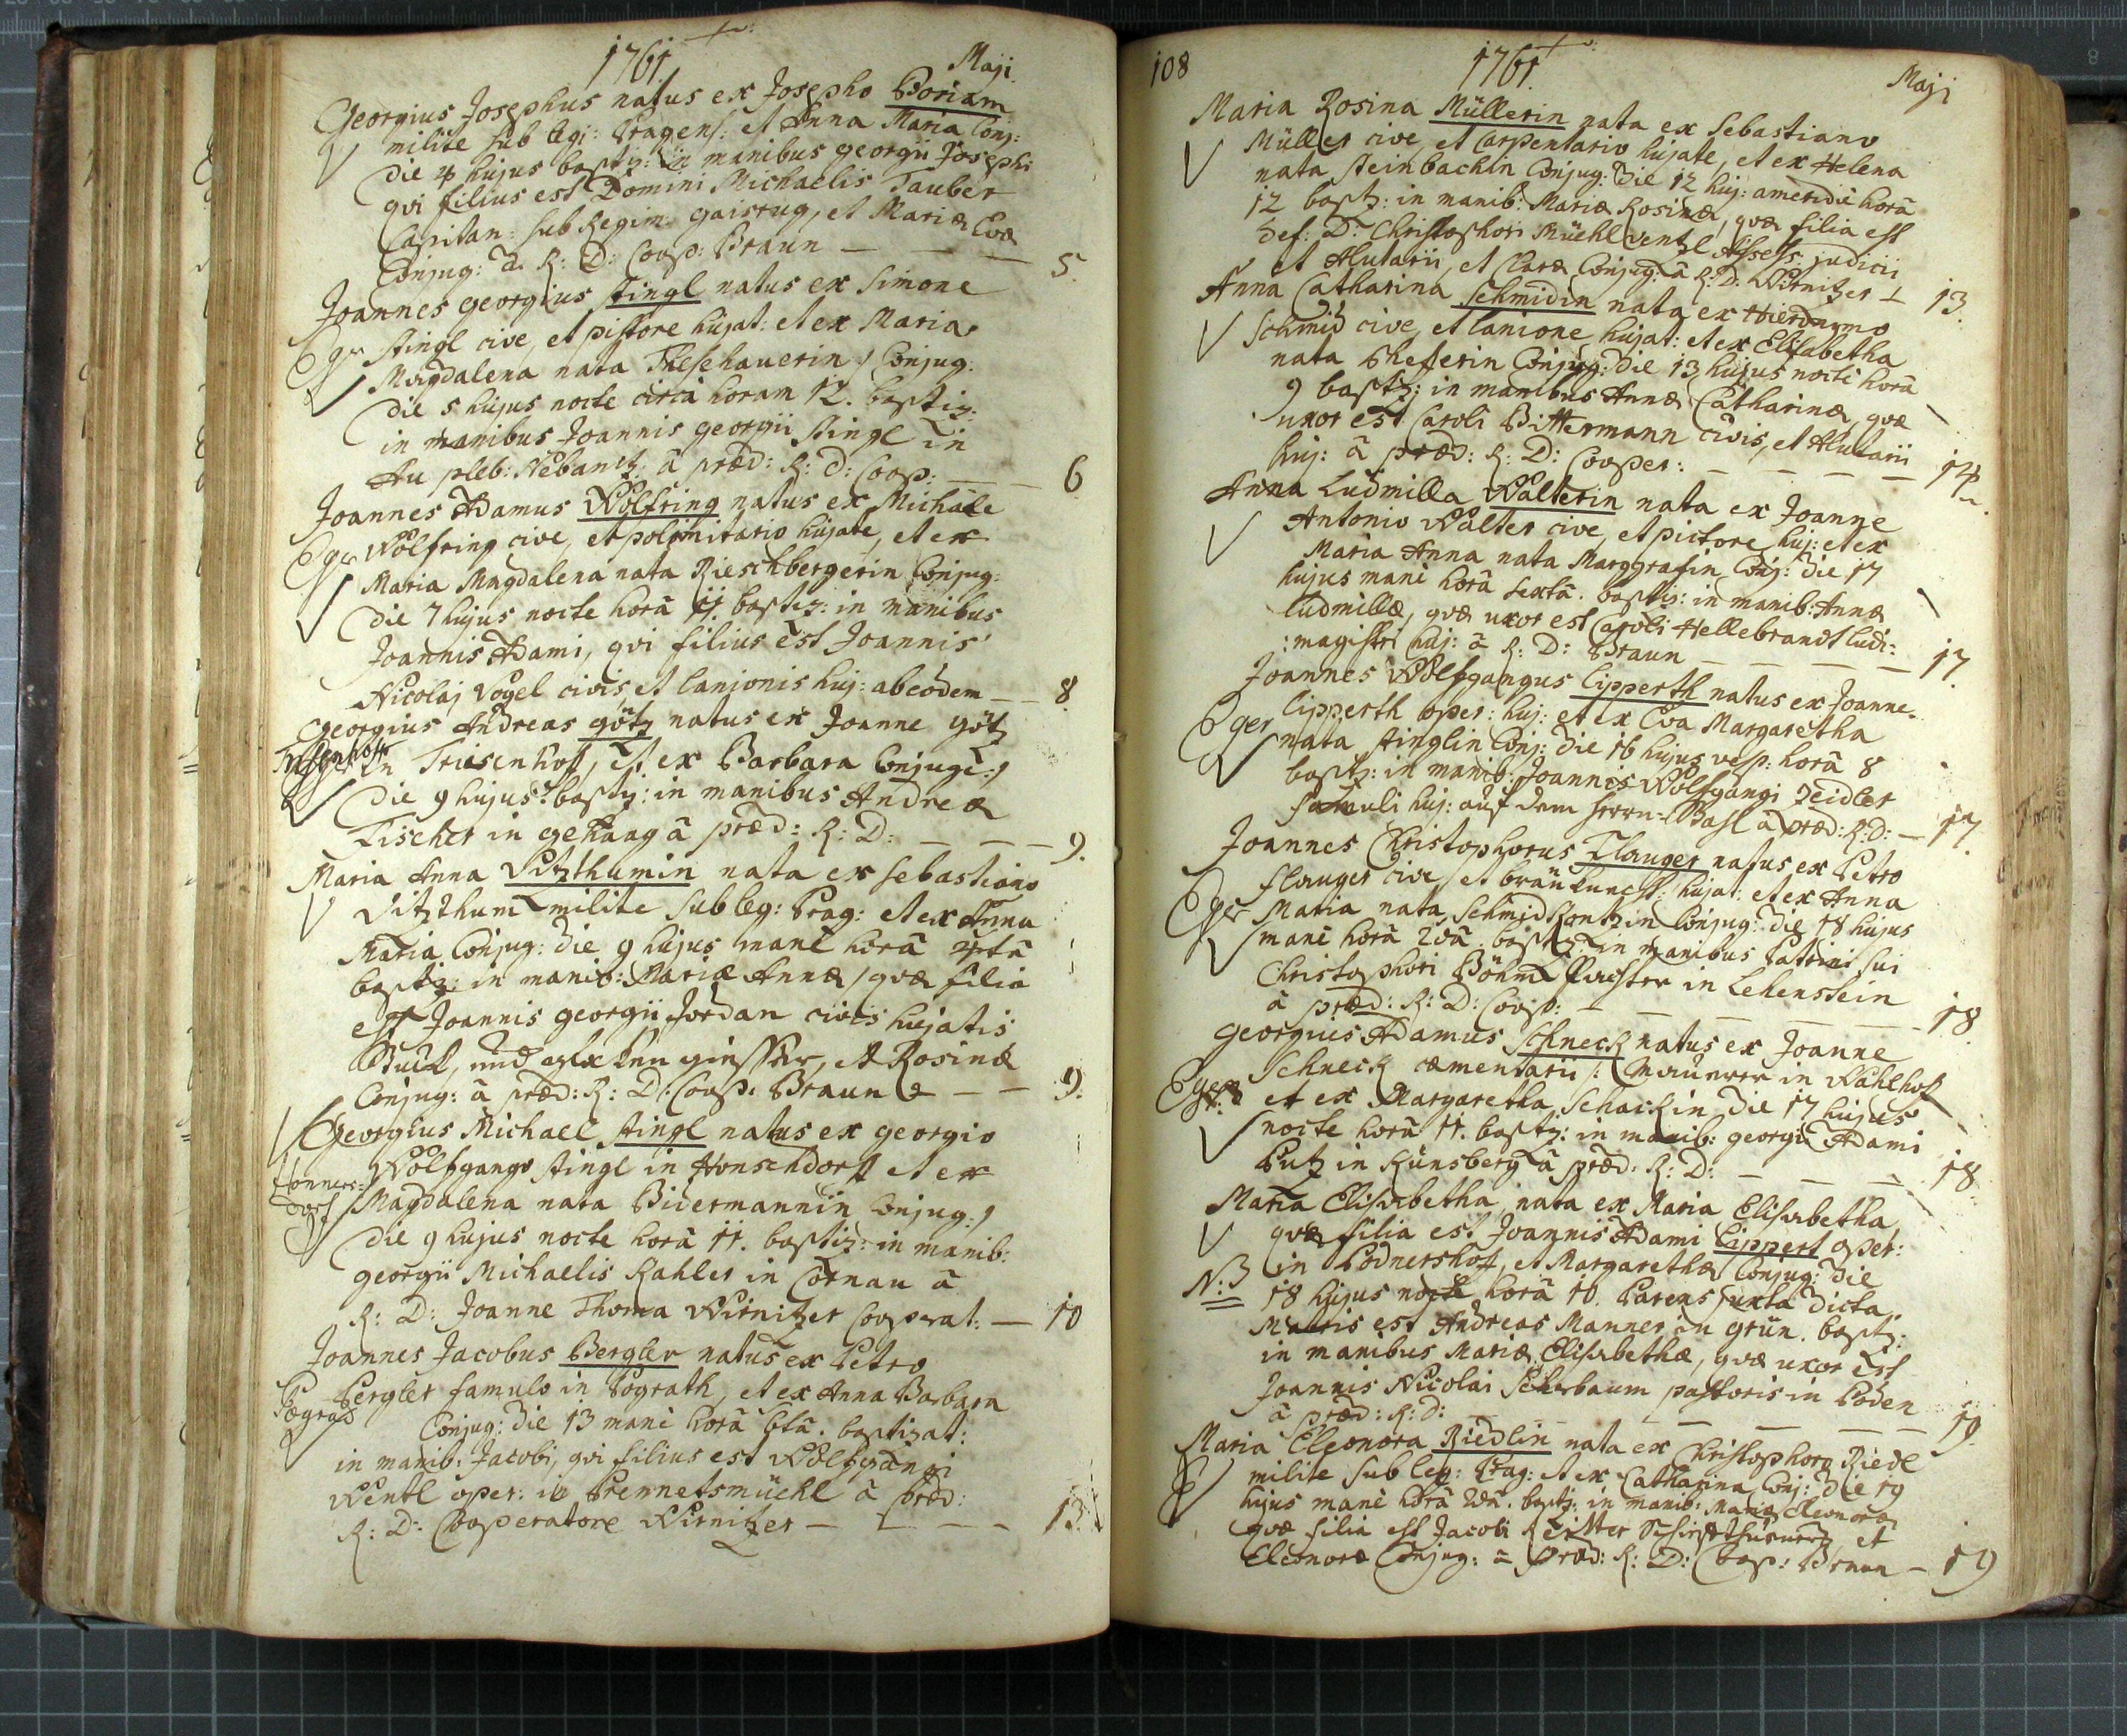 1761. Maji.
Georgius Josephus natus ex Josepho Boriam
milite sub legi: Pragens: et Anna Maria Conj:
die 4 hujus baptiz: in manibus georgii Josephi
qvi filius est Domini Michaelis Tauber
Capitan: sub Regim: gaisrug, et Mariæ Evæ
Conjug: â R: D: Coop: Braun — — — 5.
Joannes georgius Stingl natus ex Simone
Eger Stingl cive, et pistore hujat: et ex Maria
Magdalena nata Conjug:
die 5 hujus nocte circa horam 12. baptiz:
in manibus Joannis georgii Stingl in
Au pleb: Nebanitz â præd: R: D: Coop: — — 6
Joannes Adamus Wolfring natus ex Michaele
Eger Wolfring cive, et polimitario hujate, et ex
Maria Magdalena nata Rieschbergerin Conjug:
die 7 hujus nocte horâ 11. baptiz: in manibus
Joannis Adami, qvi filius est Joannis
Nicolaj Vogel civis et lanionis huj: ab eodem — — 8.
Georgius Andreas götz natus ex Joanne götz
Triesenhoff in Triesenhof, et ex Barbara Conjuge:
die 9 hujus baptiz: in manibus Andreæ
Fischer in gehaag â præd: R: D: — — — 9.
Maria Anna Vitzthumin nata ex Sebastiano
Vitzthum milite sub leg: Prag: et ex Anna
Maria Conjug: die 9 hujus manè horâ 4tâ
baptiz: in manib: Mariæ Annæ, qvæ filia
est Joannis georgii Jordan civis hujatis
Stuck, und giesser, et Rosinæ
Conjug: â præd: R: D: Coop: Braun — — 9.
Georgius Michael Stingl natus ex georgio
Wolfgango Stingl in Honschdorf et ex
Honners=
dorf Magdalena nata Bidermannin Conjug:
die 9 hujus nocte horâ 11. baptiz: in manib:
georgii Michaelis Kahler in Cornau â
R: D: Joanne Thoma Wirnitzer Cooperat: — 10
Joannes Jacobus Bergler natus ex Petro
Pergler famulo in Pograth, et ex Anna Barbara
Pograd Conjug: die 13 manè horâ 6tâ. baptizat:
in manib: Jacobi, qvi filius est Wolfgangi
Wentl oper: in Prennetsmüehl â præd:
R: D: Cooperatore Wirnitzer — — — — 13.
108 1761. Maji
Maria Rosina Müllerin nata ex Sebastiano
Müller cive, et Carpentario hujate, et ex Helena
nata Steinbachin Conjug: die 12 huj: ameridie horâ
12 baptz: in manib: Mariæ Rosinæ, qvæ filia est
def: D: Christophori Müehlventzl Assess: judicii
et Alutarii, et Claræ Conjug: â R: D: Wirnitzer — 13.
Anna Catharina Schmidin nata ex Hieronymo
Schmid cive, et lanione hujat: et ex Elisabetha
nata Pheferin Conjug: die 13 hujus nocti horâ
9 baptiz: in manibus Annæ Catharinæ, qvæ
uxor est Caroli Bittermann civis, et Alutarii
huj: â præd: R: D: Cooper: — — — — 14.
Anna Ludmilla Walterin nata ex Joanne
Antonio Walter cive, et pictore huj: et ex
Maria Anna nata Marggrafin Conj: die 17
hujus manè horâ sextâ. baptiz: in manib: Annæ
Ludmillæ, qvæ uxor est Caroli Hellebrandt ludi:
:magistri huj: â R: D: Braun — — — — 17.
Joannes Wolfgangus Lipperth natus ex Joanne
Eger Lipperth oper: huj: et ex Eva Margaretha
nata Stinglin Conj: die 16 hujus vesp: horâ 8
baptz: in manib: Joannis Wolfgangi Zeidler
famuli huj: auf dem â præd: R: D: — 17.
Joannes Christophorus Flauger natus ex Petro
Flauger cive et hujat: et ex Anna
Eger Maria nata Schmidkontzin Conjug: die 18 hujus
manè horâ 2dâ baptiz: in manibus Patrini sui
Christophori Böhm in Lehenstein
â præd: R: D: Coop: — — — — 18.
Georgius Adamus Schneck natus ex Joanne
Schneck cæmentarii /: Maurer in Wahlhof
Eger et ex Margaretha Schackin die 17 hujus
nocte horâ 11. baptz: in manib: georgii Adami
Putz in Künsberg â præd: R: D: — — — 18.
Maria Elisabetha nata ex Maria Elisabetha
qvæ filia est Joannis Adami Lippert oper:
in Podnershof, et Margarethæ Conjug: die
N:B 18 hujus nocte horâ 10. Parens juxta dicta
Matris est Andreas Manner in grün. baptz:
in manibus Mariæ Elisabethæ, qvæ uxor est
Joannis Nicolai Scherbaum pastoris in Poden
â præd: R: D: — — — — 19.
Maria Eleonora Riedlin nata ex Christophoro Riedl
milite sub leg: Prag: et ex Catharina Conj: die 19
hujus manè horâ 2dâ. baptz: in manib: Mariæ Eleonoræ
qvæ filia est Jacobi Reitter et
Eleonoræ Conjug: â præd: R: D: Coop: Braun — 19